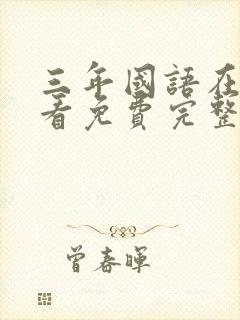 三年國語在
看免費完整
曾春暉